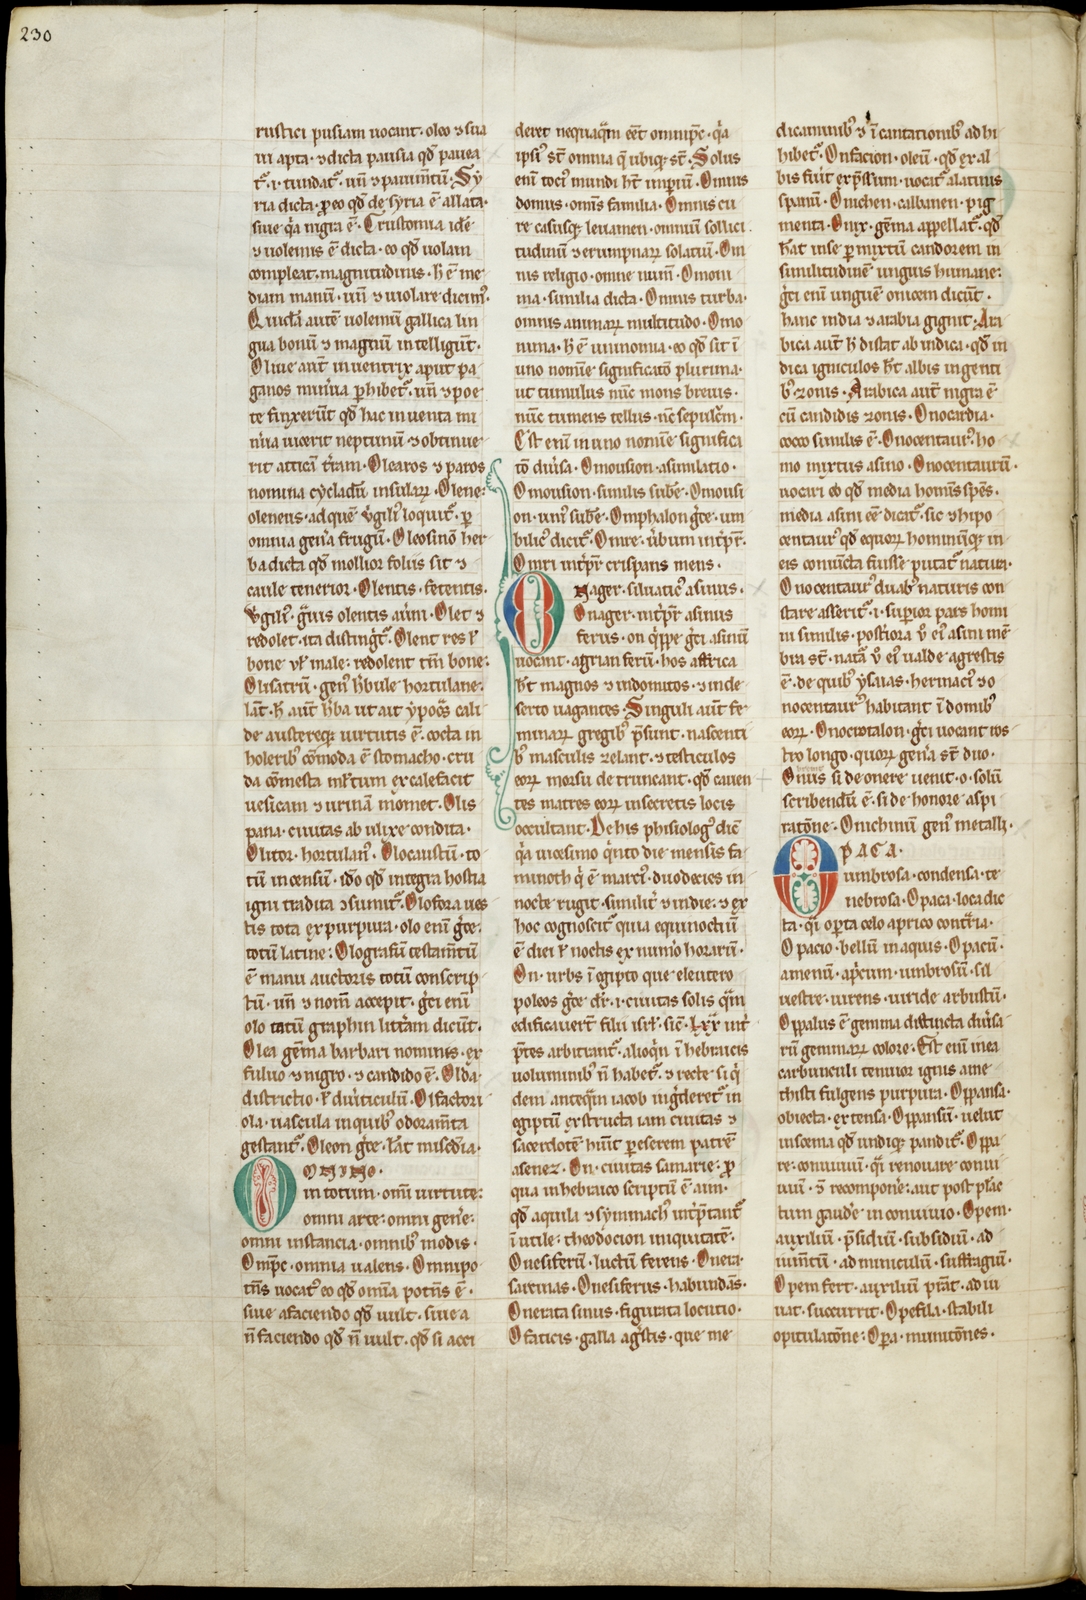 230
rustici pusiam uocant. oleo ⁊ sua
ui apta. ⁊ dicta pausia qd̄ pauea
t᷒. i. tundat᷒. un̄ ⁊ pauim̄tū. Sy
ria dicta. ꝓ eo qd̄ de syria ē allata.
siue q̇a nigra ē. Crustomia idē
⁊ uolemis ē dicta. eo qd̄ uolam
compleat. magnitudinis. h̄ ē me
diam manū. un̄ ⁊ uiolare dicim᷒.
Quidā autē uolemū gallica lin
gua bonū ⁊ magnū intelligūt.
Oliue aut̄ inuentrix aput pa
ganos min̄ua ꝑhibet᷒. un̄ ⁊ poe
te finxerūt qd̄ hac inuenta mi
n̄ua uicerit neptunū ⁊ obtinue
rit atticā t̄ram. Olearos ⁊ paros
nomina cycladū insulaꝝ. Olene.
olenens. ad quē v̇gili᷒ loquit᷒. ꝑ
omnia gen̄a frugū. Oleosinō her
ba dicta qd̄ mollior foliis sit ⁊
caule tenerior. Olentis. fetentis.
v̇gili᷒. g̊uis olentis auīni. Olet ⁊
redolet. ita disting̊t᷒. Olent res ł
bone uł male: redolent tm̄ bone.
Olisatrū. gen᷒ h̄bule hortulane.
lāt. h̄ aut̄ h̄ba ut ait ypoc̊s cali
de austereqꝫ uirtutis ē. cocta in
holerib᷒ cōmoda ē stomacho. cru
da cōmesta mł̄tum excalefacit
uesicam ⁊ urinā mouet. Olis
pana. ciuitas ab ulixe condita.
Olitor. hortulan᷒. Olocaustū. to
tū incensū. ido qd̄ integra hostia
igni tradita ⁊sumit᷒. Olofora ues
tis tota ex purpura. olo enī g̊ce.
totū latine: Olografū testam̄tū
ē manu auctoris totū conscrip
tū. un̄ ⁊ nom̄ accepit. g̊ci enī
olo totū graphin litt̄am dicūt.
Olea gēma barbari nominis. ex
fuluo ⁊ nigro. ⁊ candido ē. Olda.
districtio. ł diu̇ticulū. Olfactori
ola. uascula in quib᷒ odoram̄ta
gestant᷒. Oleon g̊ce. łat misc̄dia.
OMNINO.
in totum. omī uirtute:
omni arte: omni gen̄e:
omni instancia. omnib᷒ modis.
Omp̄c. omnia ualens. Omnipo
tn̄s uocat᷒ eo qd̄ omīa potn̄s ē.
siue a faciendo qd̄ uult. siue a
n̄ faciendo qd̄ n̄ uult. qd̄ si acci
deret nequaq̄m eēt omnip̄c. q̊a
ipsi᷒ st̄ omnia q̄ ubiqꝫ st̄. Solus
enī toci᷒ mundi h̄t imꝑiū. Omnis
domus. omīs familia. Omnis cu
re casusqꝫ leuamen. omniū sollici
tudinū ⁊ erumpnaꝝ solatiū. Om
nis religio. omne numī. Omoni
ma. similia dicta. Omnis turba.
omnis animaꝝ multitudo. Omo
nima. h̄ ē uninomia. eo qd̄ sit ī
uno nomīe significatō plurima.
ut tumulus nūc mons breuis.
nūc tumens tellus. nc̄ sepulcm̄.
Est enī in uno nomīe significa
tō diu̇sa. Omousion. asimilatio.
Omousion. similis subē. Omousi
on. uni᷒ sub̄e. Omphalon g̊ce. um
bilic᷒ dicit᷒. Omre. ūbum int̄pr̄.
Omri int̄pr̄ crispans meus.
Onager. siluatic᷒ asinus.
Onager. int̄pr̄ asinus
ferus. on q̊ppe g̊ci asinū
uocant. agrian ferū. hos affrica
h̄t magnos ⁊ indomitos. ⁊ inde
serto uagantes. Singuli aut̄ fe
minaꝝ gregib᷒ p̄sunt. nascenti
b᷒ masculis zelant. ⁊ testiculos
eoꝝ morsu detruncant. qd̄ cauen
tes matres eoꝝ in secretis locis
occultant. De his phisiolog᷒ dic̄
q̊a uicesimo q̊nto die mensis fa
minoth q̇ ē marci᷒. duodecies in
nocte rugit. similit̄ ⁊ in die: ⁊ ex
hoc cognoscit᷒ quia equinoctiū
ē diei ł noctis ex num̄o horarū.
On. urbs ī egipto que eleutero
poleos g̊ce dr̄. i. ciuitas solis q̊m
edificauert̄ filii isrł. sic̄. lxx int̄
p̄tes arbitrant᷒. alioq̇n ī hebraicis
uoluminib᷒ n̄ habet᷒. ⁊ recte si q̇
dem anteq̊m iacob ing̊deret᷒ in
egiptū exstructa iam ciuitas ⁊
sacerdotē hūit peserem patrē
asenez. On. ciuitas samarie: ꝓ
qua in hebraico scriptū ē aun.
qd̄ aquila ⁊ symmach᷒ int̄p̄tant᷒
ī utile: theodocion iniquitatē.
Onesiferū. luctū ferens. Onera.
sarcinas. Onesiferus. habundās.
Onerata sinus. figurata locutio.
Ofaticis. galla ag̊stis. que me
dicaminib᷒ ⁊ īcantationib᷒ adhi
hibet᷒. Onfacion. oleū. qd̄ ex al
bis fuit exp̄ssum. uocat᷒ alatinis
spanū. Onichen. calbanen. pig
menta. Onix. gēma appellat᷒. qd̄
h̄at inse ꝑmixtū candorem in
similitudinē unguis humane:
g̊ci enī unguē onicem dicūt.
hanc india ⁊ arabia gignit: Ara
bica aut̄ h̄ distat ab indica. qd̄ in
dica igniculos h̄t albis ingenti
b᷒ zonis. Arabica aut̄ nigra ē
cū candidis zonis. Onocardia.
cocco similis ē. Onocentaur᷒. ho
mo mixtus asino. Onocentaurū.
uocari eo qd̄ media homīs sp̄es.
media asini eē dicat᷒. sic ⁊ hipo
centaur᷒ qd̄ equoꝝ hominūqꝫ in
eis coniūcta fuisse putat᷒ natura.
Onocentaur᷒ duab᷒ naturis con
stare asserit᷒. i. supior pars homi
ni similis. post̄iora v̊ ei᷒ asini mē
bra st̄. natā v̊ ei᷒ ualde agrestis
ē. de quib᷒ ysaias. herinaci᷒ ⁊ o
nocentaur᷒ habitant ī domib᷒
eoꝝ. Onocrotalon. g̊ci uocant ros
tro longo. quoꝝ gen̄a st̄ duo.
Onus si de onere uenit. o. solū
scribendū ē. si de honore aspi
ratōne. Onichinū gen᷒ metalli.
OPACA.
umbrosa. condensa. te
nebrosa. Opaca. loca dic
ta. q̊i oꝑta celo aprico cont̄ria.
Opacio. bellū in aquis. Opacū.
amenū. ap̊cum. umbrosū. sil
uestre. uirens. uiride arbustū.
Oppalus ē gemma distincta diu̇sa
rū gemmaꝝ colore. Est enī in ea
carbunculi tenuior ignis ame
thisti fulgens purpura. Oppansa.
obiecta. extensa. Oppansū. uelut
in scema qd̄ undiqꝫ pandit᷒. Oppa
re: conuiuiū. q̊i renouare conui
uiū. ⁊ recomponē: aut post plāc
tum gaud̄e in conuiuio. Opem.
auxiliū. p̄sidiū. subsidiū. ad
ium̄tū. adminiculū. suffragiū.
Opem fert. auxiliū p̄stat. adiu
uat. succurrit. Opefila. stabili
opitulatōne: Opa. munitōnes.